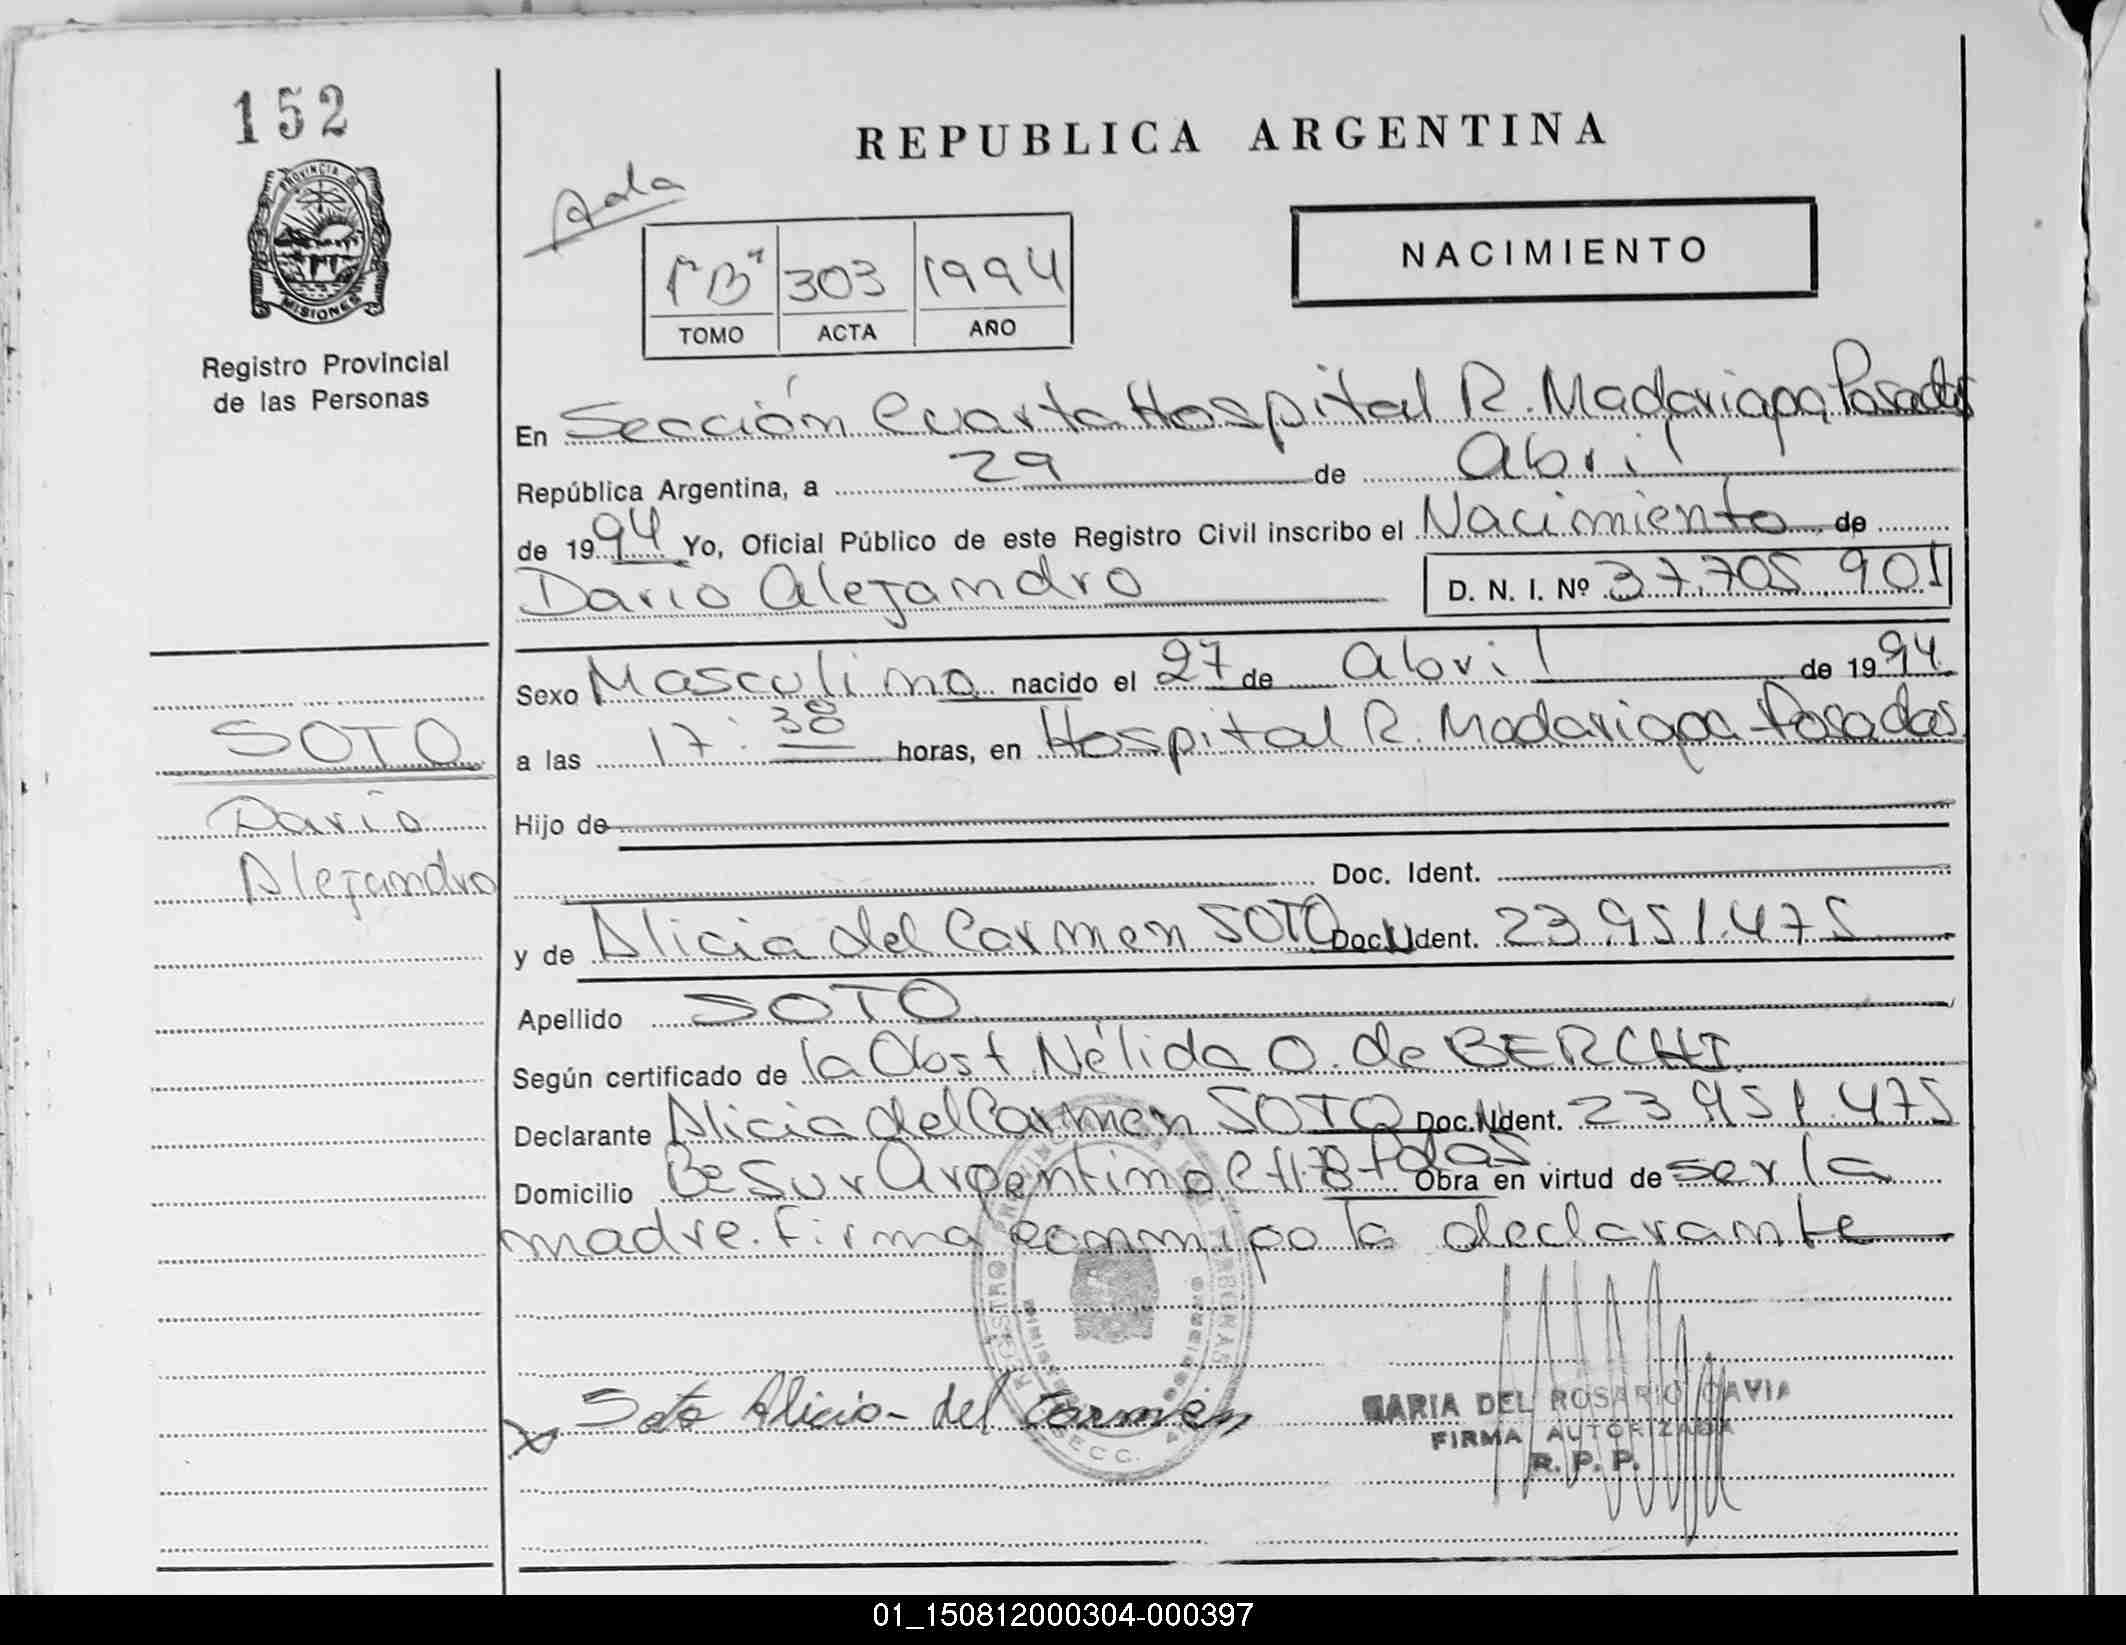 152
REPUBLICA ARGENTINA
PROVINCIA DE
MISIONES
Registro Provincial
de las Personas
NACIMIENTO
1º "B" 303 1994
TOMO ACTA AÑO
En Sección Cuarta Hospital R. Madariaga, Posadas
República Argentina, a 29 de Abril
de 1994 Yo, Oficial Público de este Registro Civil inscribo el Nacimiento de
Dario Alejandro D. N. I. Nº 37.705.901
Sexo Masculino nacido el 27 de Abril de 1994
a las 17:30 horas, en Hospital R. Madariaga Posadas
SOTO
Dario
Alejandro
Hijo de
Doc. Ident.
y de Alicia del Carmen SOTO Doc. Ident. 23.951.475
Apellido SOTO
Según certificado de la Obst. Nélida O. de BERCHI
Declarante Alicia del Carmen SOTO Doc. Ident. 23.951.475
Domicilio Bº Sur Argentino Pdas Obra en virtud de ser la
madre. Firma conmigo la declarante
Soto Alicia del Carmen
MARIA DEL ROSARIO
FIRMA AUTORIZADA
R. P. P.
01_150812000304-000397